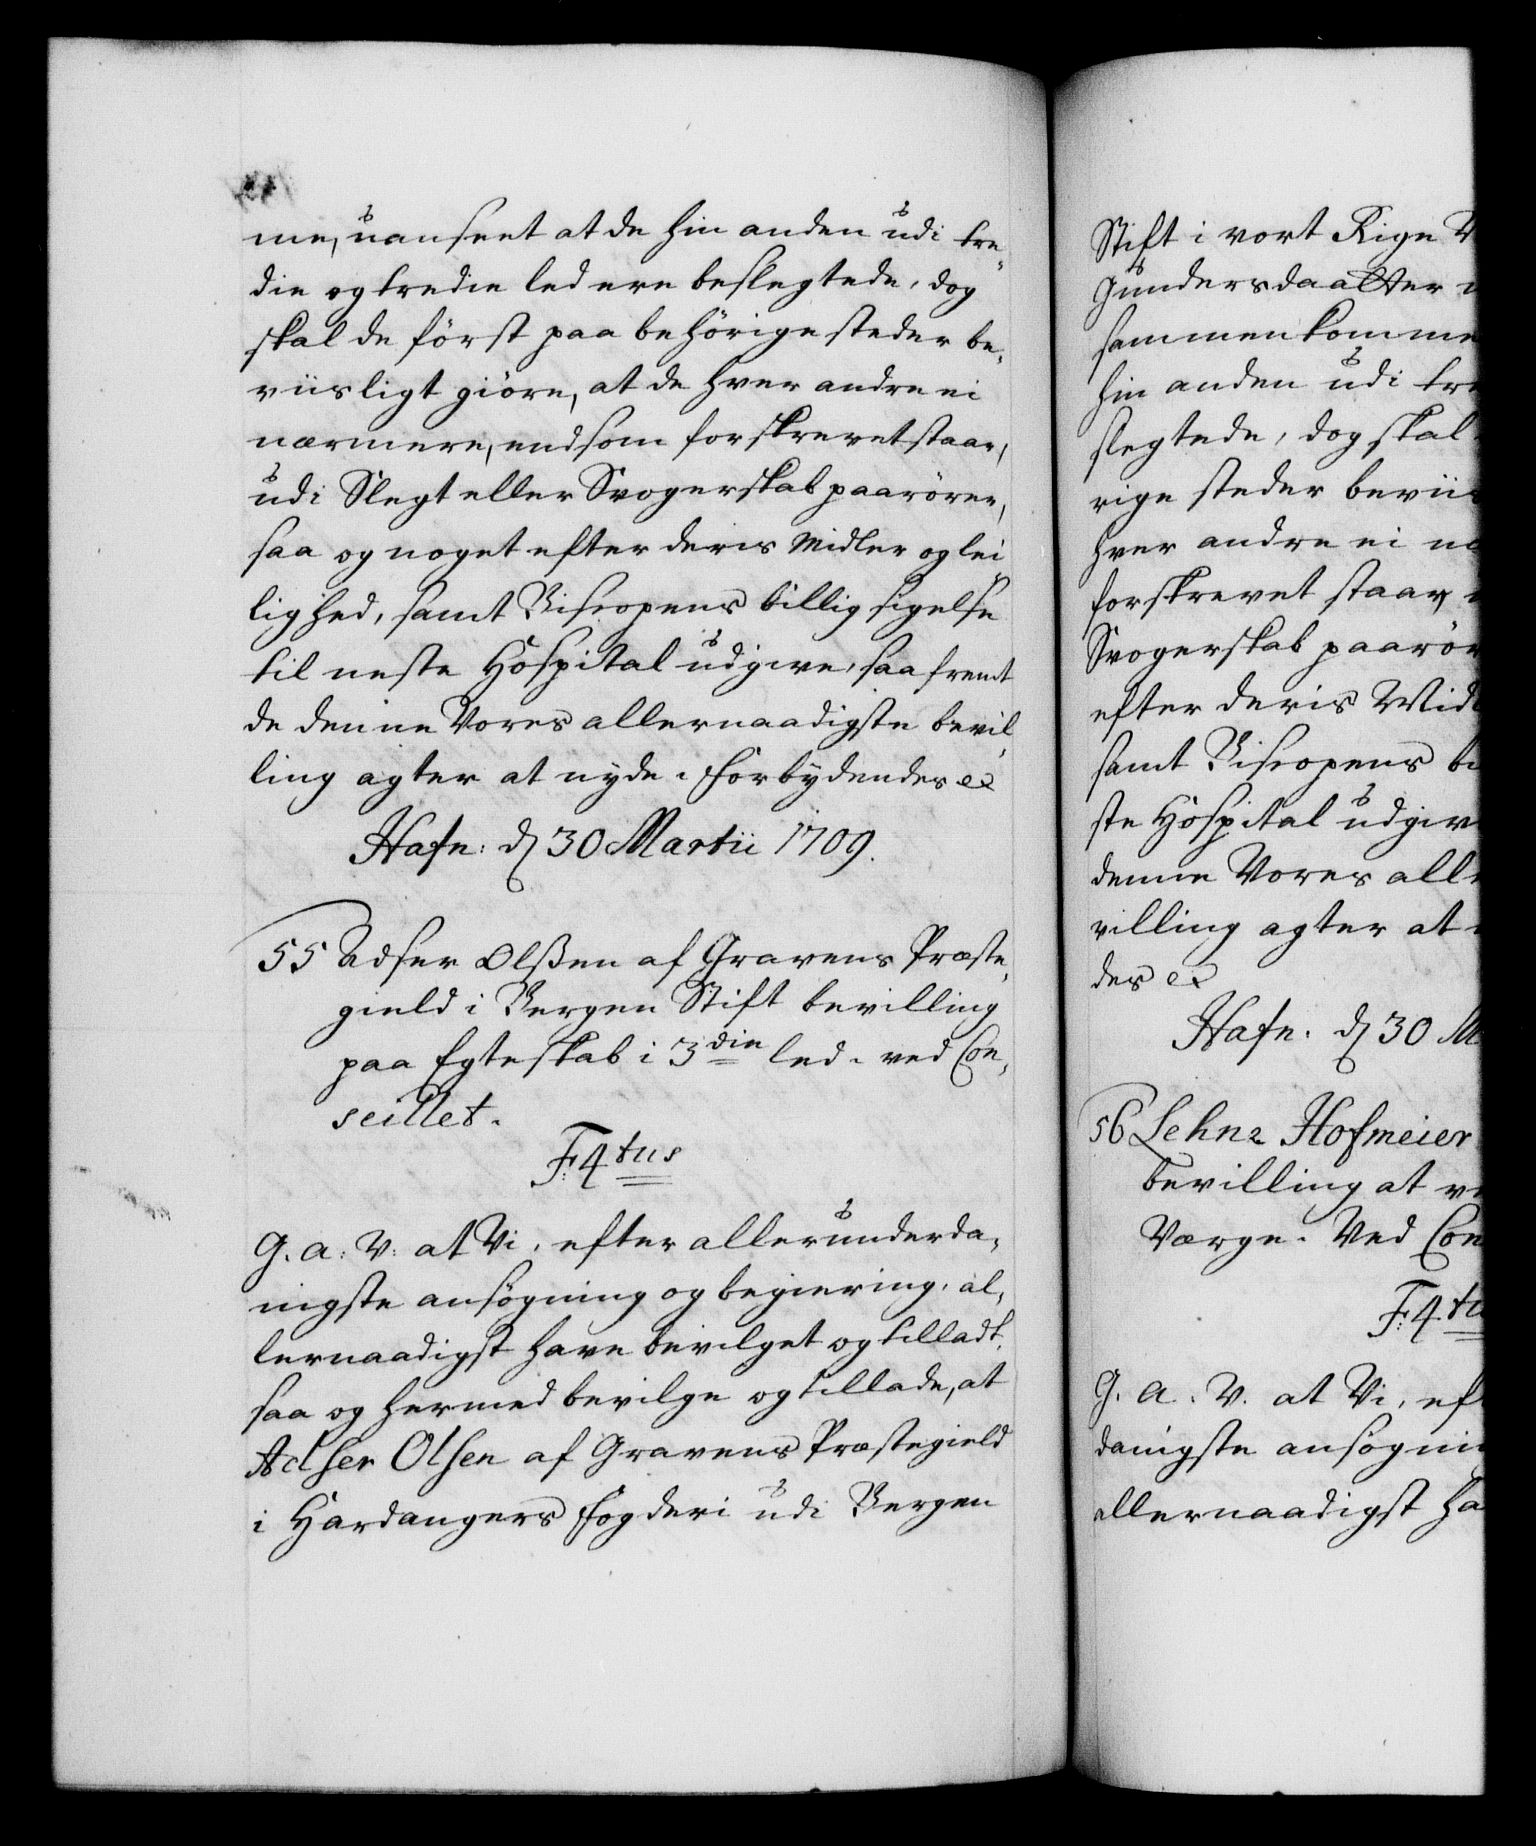 me, uanseet at de hin anden udi tre„
die og tredie led ere beslegtede, dog
skal de först paa behörige steder be„
viisligt giöre, at de hver andre ei
nærmere, end som forskrevet staar,
udi Slegt eller Svogerskab paarörer,
saa og noget efter deris Midler og lei„
lighed, samt Biscopens billig sigelse
til neste Hospital udgive, saa fremt
de denne Vores allernaadigste bevil„
ling agter at nyde. Forbydendes &
Hafn: d 30 Martii 1709.
55 Adser Olßen af Gravens Præste„
gield i Bergen Stift bevilling
paa Egteskab i 3die led. ved Con„
seillet.
F: 4tus
G. a: V: at Vi, efter allerunderda„
nigste ansögning og begiering, al„
lernaadigst have bevilget og tilladt,
saa og hermed bevilge og tillade, at
Adser Olsen af Gravens Præstegield
i Hardangers Fogderi udi Bergen
Stift i vort Rige
Gundersdaatter
sammenkomme
hin anden udi tre
slegtede, dog skal
rige steder beviis
hver andre ei næ
forskrevet staar,
Svogerskab paarör
efter deris Midl
samt Biscopens bi
ste Hospital udgiv
denne Vores alle
villing agter at
des &
Hafn. d 30 M
56 Lehne Hofmeier
bevilling at v
Værge. Ved Con
F: 4tu
G. a. V. at Vi, eft
danigste ansögnin
allernaadigst ha